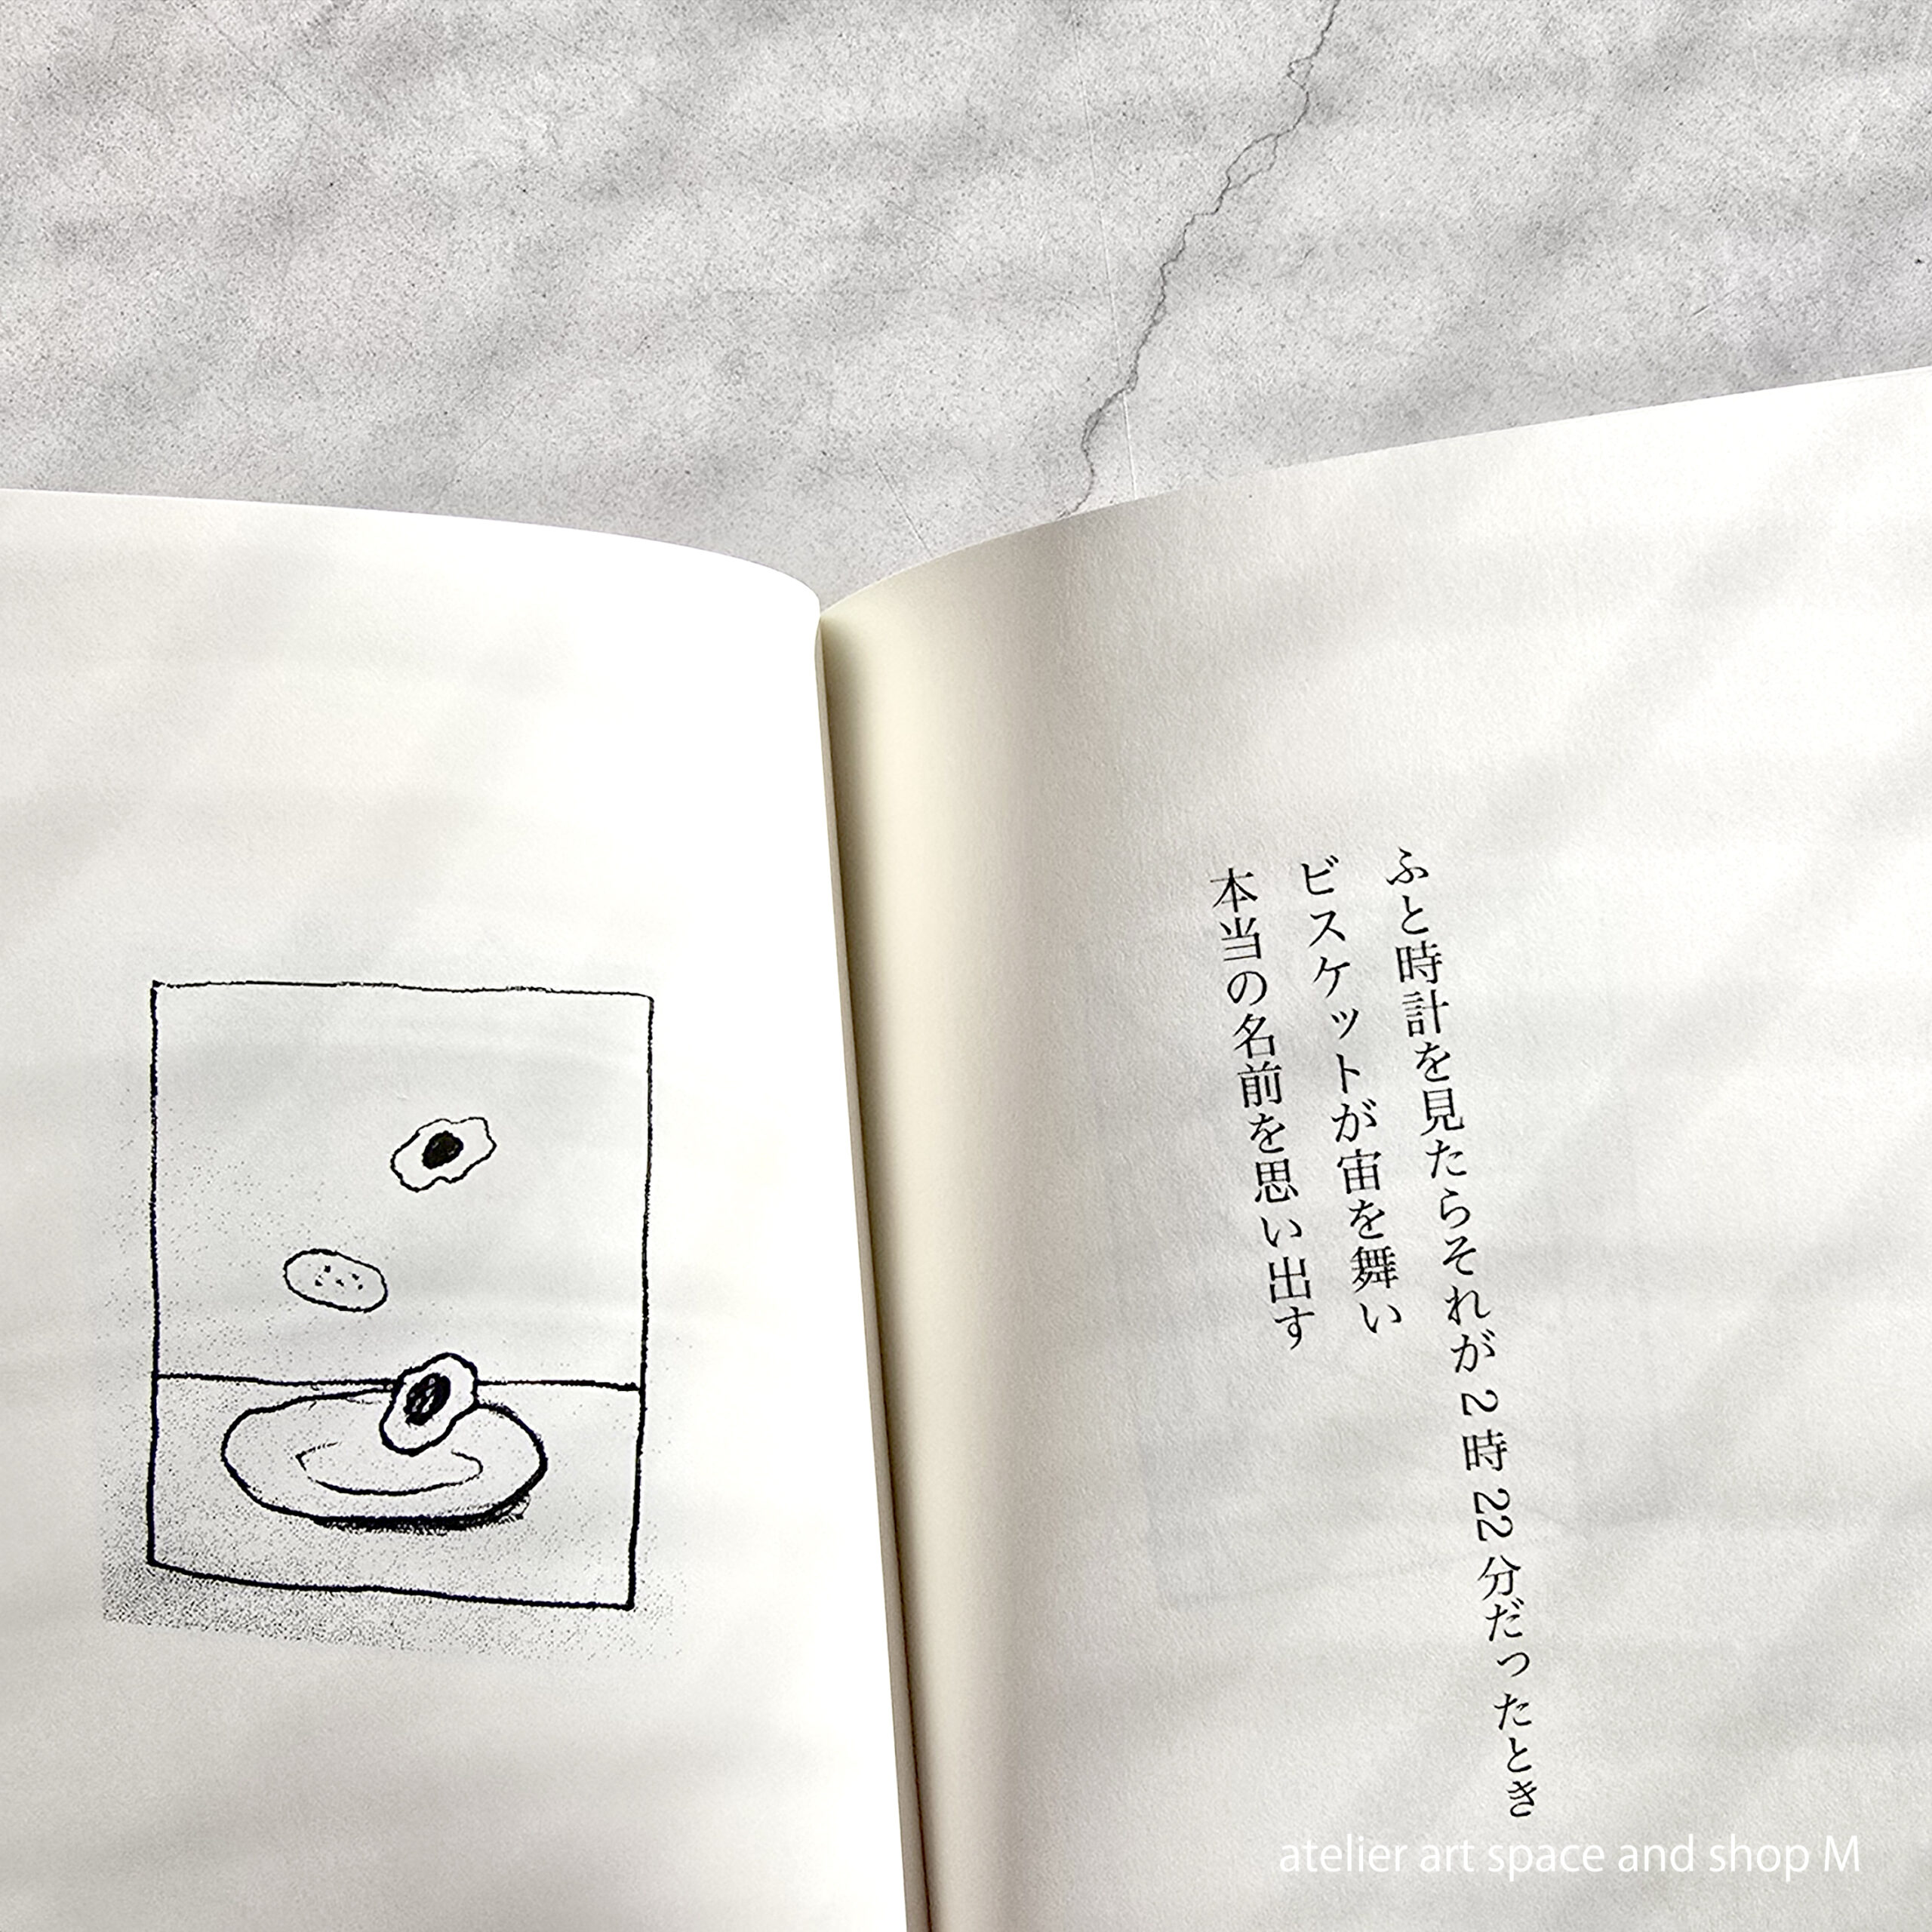 ふと時計を見たらそれが2時22分だったとき
ビスケットが宙を舞い
本当の名前を思い出す
atelier art space and shop M